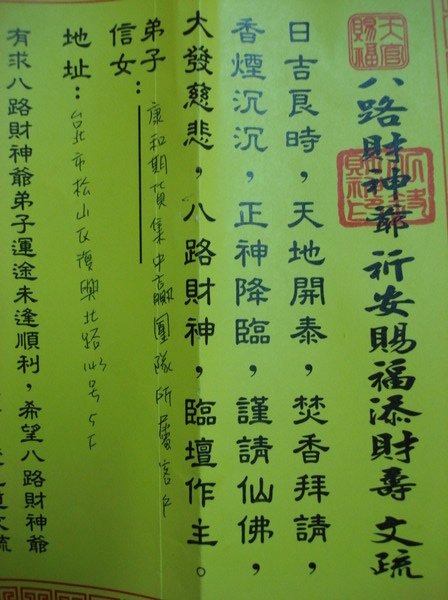 天官賜福
八路財神爺 祈安賜福添財壽 文疏
日吉良時，天地開泰，焚香拜請，
香煙沉沉，正神降臨，謹請仙佛，
大發慈悲，八路財神，臨壇作主。
弟子
信女：
康和期貨集中贏團隊所屬客戶
地址：
台北市松山区復興北路143号5F
有求八路財神爺弟子運途未逢順利，希望八路財神爺